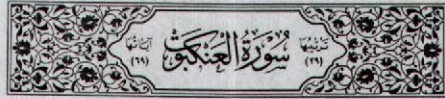 ترتيبها (٢٩) سُورَةُ الْعَنْكَبُوتِ آياتها (٦٩)